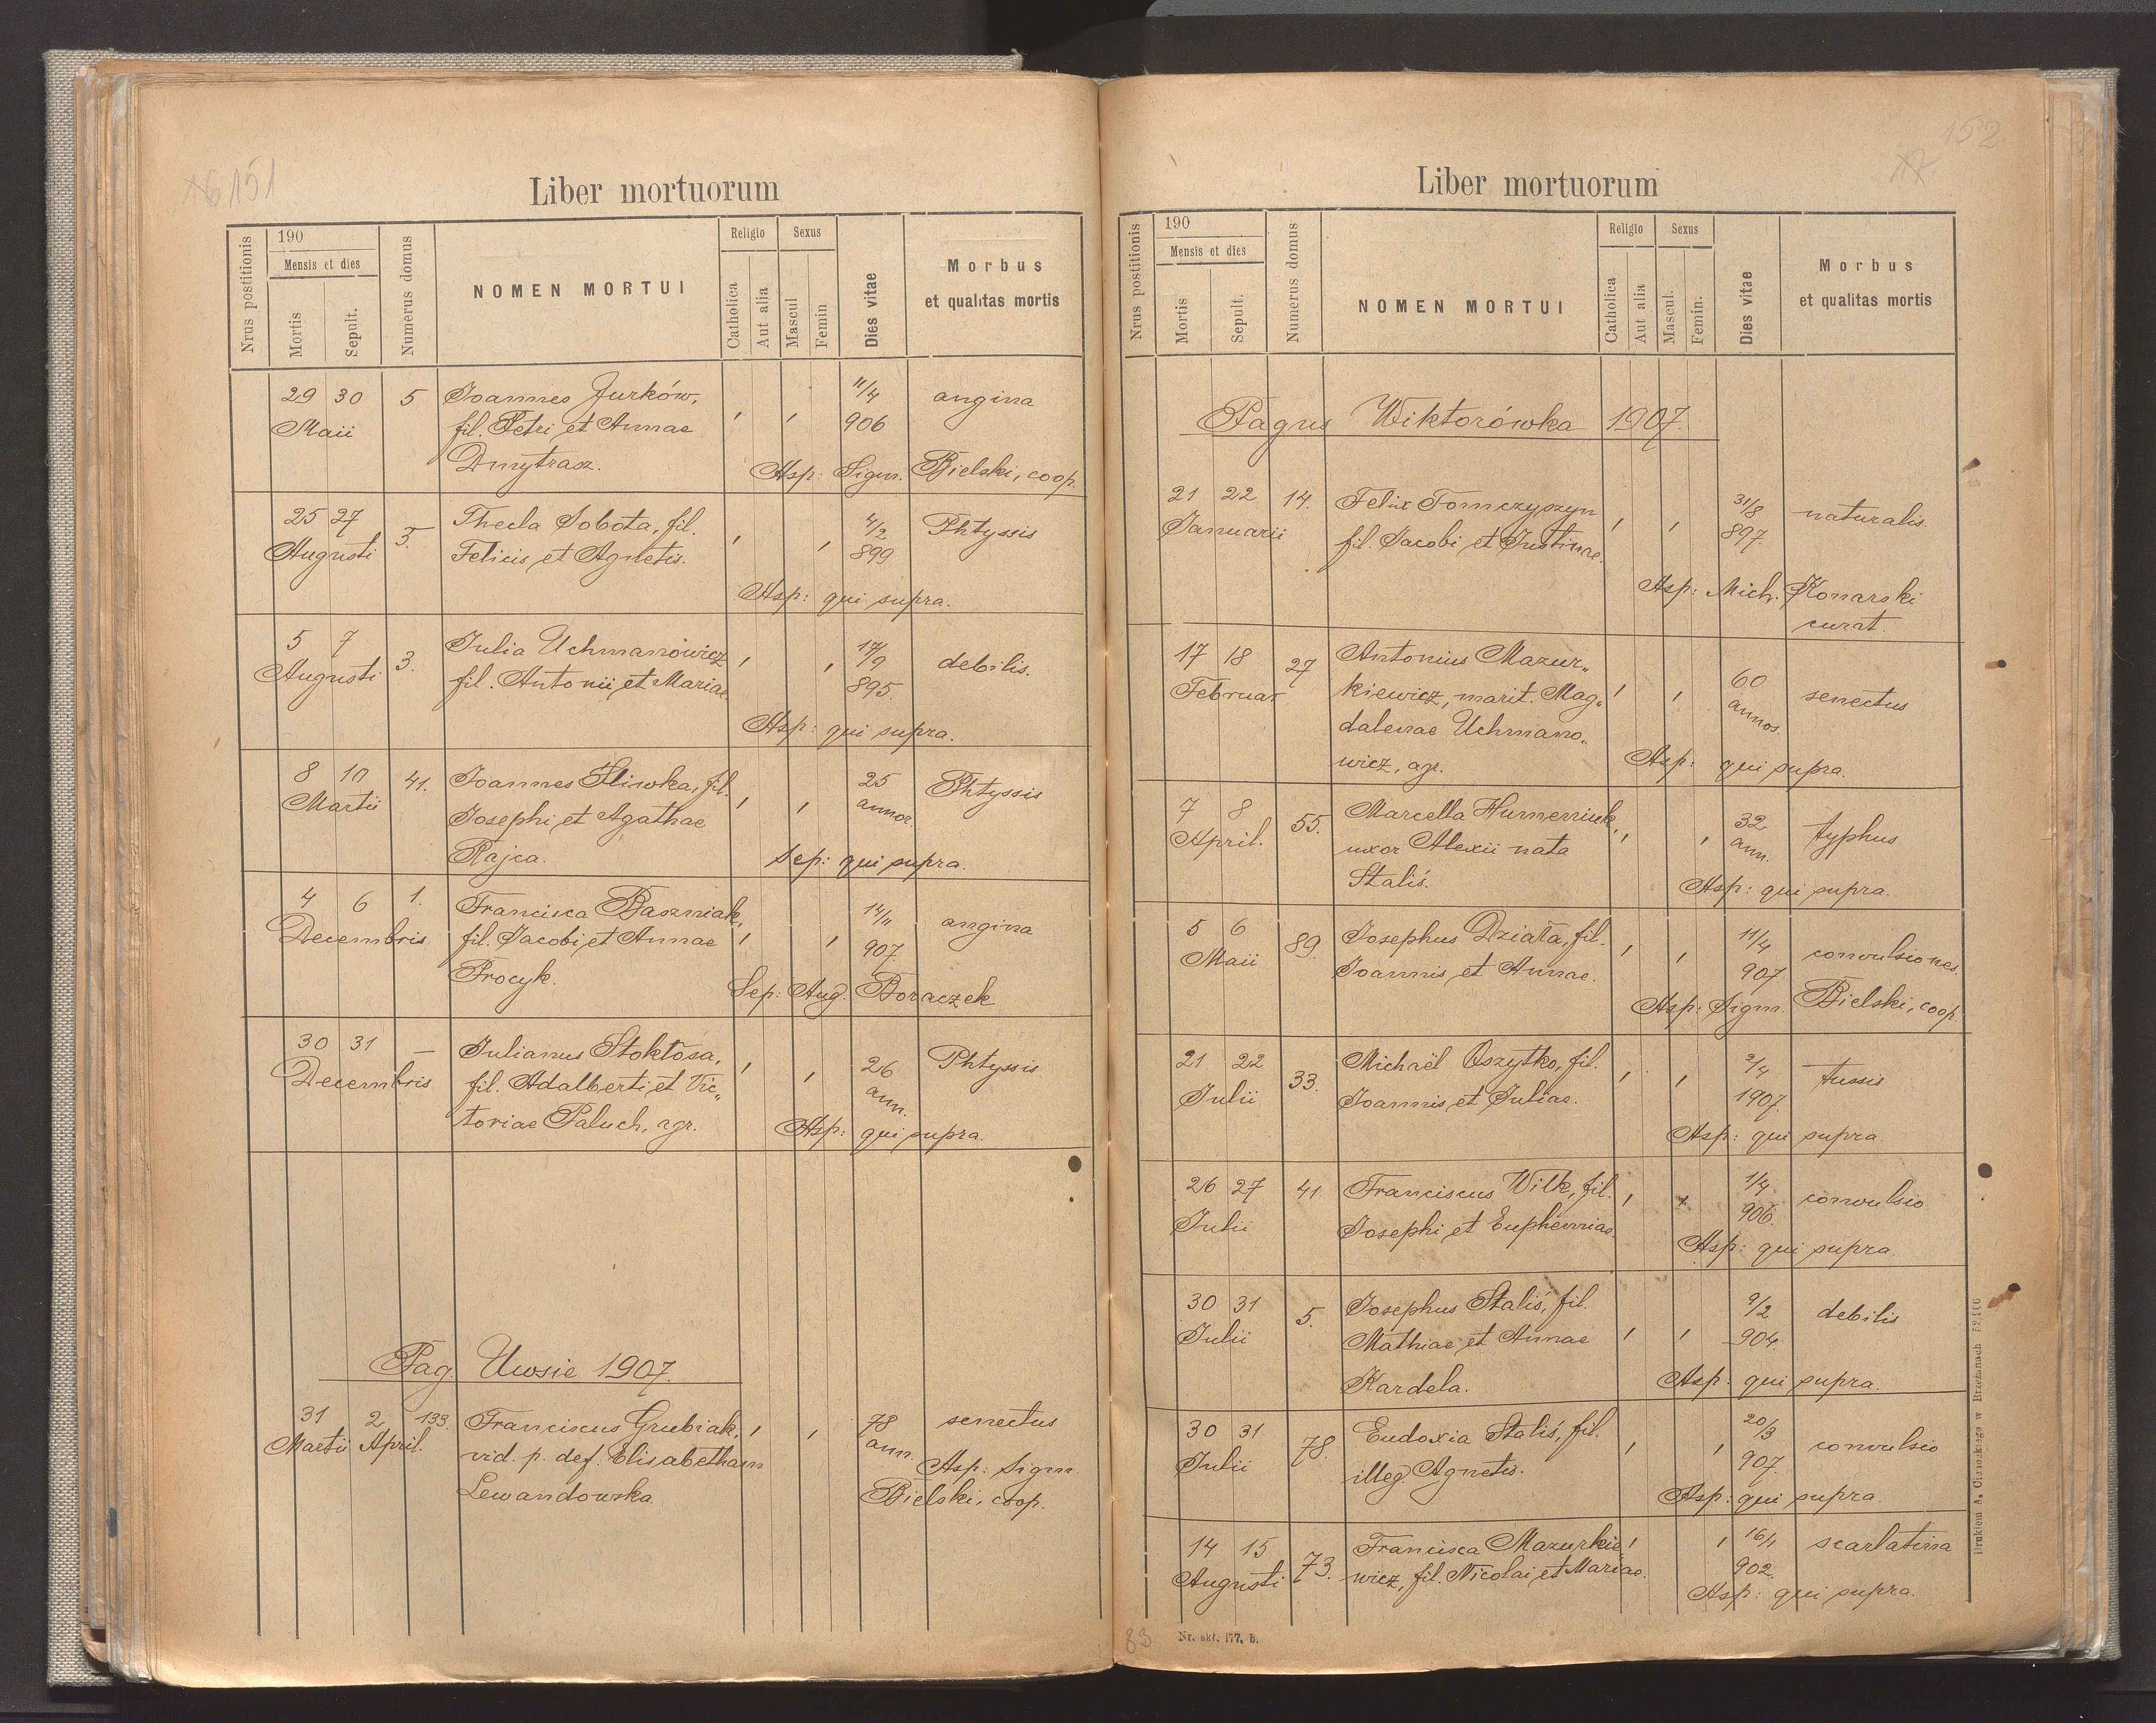 151
Liber mortuorum
Nrus postitionis
190
Mensis et dies
Mortis
Sepult.
Numerus domus
NOMEN MORTUI
Religio
Catholica
Aut alia
Sexus
Mascul
Femin
Dies vitae
Morbus
et qualitas mortis
29 30 5 Joannes Jurków, 11/4 angina
Maii fil. Petri et Annae 906
Dmytrasz.
Asp: Sigm. Bielski, coop.
25 27 3. Thecla Sobota, fil. 4/2 Phtyssis
Augusti Felicis et Agnetis. 899
Asp: qui supra.
5 7 3. Julia Uchmanowicz 17/9 debilis.
Augusti fil. Antonii et Mariae 895.
Asp: qui supra.
8 10 41. Joannes Śliwka, fil. 25 Phtyssis
Martii Josephi et Agathae annor.
Rajca.
Sep: qui supra.
4 6 1. Francisca Baszniak, 14/11 angina
Decembris fil. Jacobi et Annae 907.
Procyk.
Sep: Aug. Boraczek
30 31 — Julianus Stokłosa, 26 Phtyssis
Decembris fil. Adalberti et Vic„ ann.
toriae Paluch, agr.
Asp: qui supra.
Pag. Uwsie 1907.
31 2 133. Franciscus Grubiak, 78 senectus
Martii April. vid. p. def. Elisabetham ann. Asp: Sigm.
Lewandowska. Bielski, coop.
152
Liber mortuorum
Nrus postitionis
190
Mensis et dies
Mortis
Sepult.
Numerus domus
NOMEN MORTUI
Religio
Catholica
Aut alia
Sexus
Mascul.
Femin.
Dies vitae
Morbus
et qualitas mortis
Pagus Wiktorówka 1907.
21 22 14. Felix Tomczyszyn 31/8 naturalis.
Januarii fil. Jacobi et Justinae. 897.
Asp: Mich. Konarski
curat.
17 18 27 Antonius Mazur„ 60 senectus
Februar kiewicz, marit. Mag„ annos.
dalenae Uchmano„
wicz, agr. Asp: qui supra.
7 8 55. Marcella Humerniuk, 32 typhus
April. uxor Alexii nata ann.
Staliś. Asp: qui supra.
5 6 89. Josephus Działa, fil. 11/4 convulsiones.
Maii Joannis et Annae. 907.
Asp: Sigm. Bielski, coop.
21 22 33. Michaël Oszytko, fil. 2/4 tussis
Julii Joannis et Juliae. 1907.
Asp: qui supra.
26 27 41 Franciscus Wilk, fil. 1/4 convulsio
Julii Josephi et Euphemiae. 906.
Asp: qui supra.
30 31 5. Josephus Staliś, fil. 9/2 debilis
Julii Mathiae et Annae 904.
Kardela. Asp: qui supra.
30 31 78. Eudoxia Staliś, fil. 20/3 convulsio
Julii illeg. Agnetis. 907.
Asp: qui supra.
14 15 73. Francisca Mazurkie 16/1 scarlatina
Augusti wicz, fil. Nicolai et Mariae. 902.
Asp: qui supra.
83
Nr. skł. 177. b.